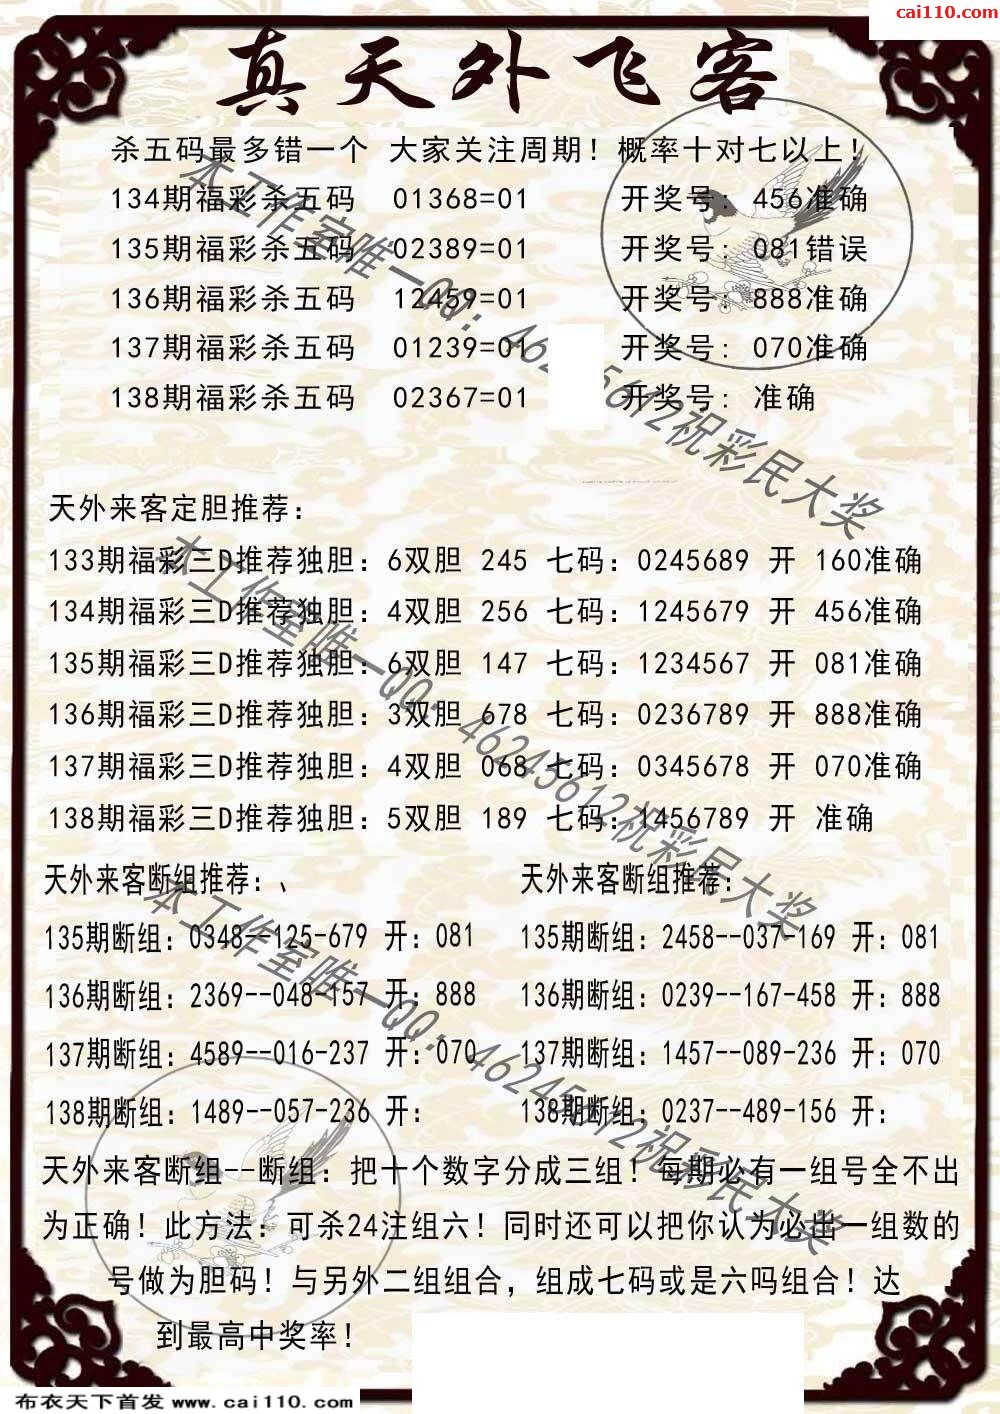 cai110.com
真天外飞客
杀五码最多错一个 大家关注周期！概率十对七以上！
134期福彩杀五码 01368=01 开奖号：456准确
135期福彩杀五码 02389=01 开奖号：081错误
136期福彩杀五码 12459=01 开奖号：888准确
137期福彩杀五码 01239=01 开奖号：070准确
138期福彩杀五码 02367=01 开奖号：准确
天外来客定胆推荐：
133期福彩三D推荐独胆：6双胆 245 七码：0245689 开 160准确
134期福彩三D推荐独胆：4双胆 256 七码：1245679 开 456准确
135期福彩三D推荐独胆：6双胆 147 七码：1234567 开 081准确
136期福彩三D推荐独胆：3双胆 678 七码：0236789 开 888准确
137期福彩三D推荐独胆：4双胆 068 七码：0345678 开 070准确
138期福彩三D推荐独胆：5双胆 189 七码：1456789 开 准确
天外来客断组推荐：、
135期断组：0348--125-679 开：081
136期断组：2369--048-157 开：888
137期断组：4589--016-237 开：070
138期断组：1489--057-236 开：
天外来客断组推荐：
135期断组：2458--037-169 开：081
136期断组：0239--167-458 开：888
137期断组：1457--089-236 开：070
138期断组：0237--489-156 开：
天外来客断组--断组：把十个数字分成三组！每期必有一组号全不出
为正确！此方法：可杀24注组六！同时还可以把你认为必出一组数的
号做为胆码！与另外二组组合，组成七码或是六吗组合！达
到最高中奖率！
本工作室唯一QQ：46245612祝彩民大奖
本工作室唯一QQ：46245612祝彩民大奖
本工作室唯一QQ：46245612祝彩民大奖
布衣天下首发 www.cai110.com